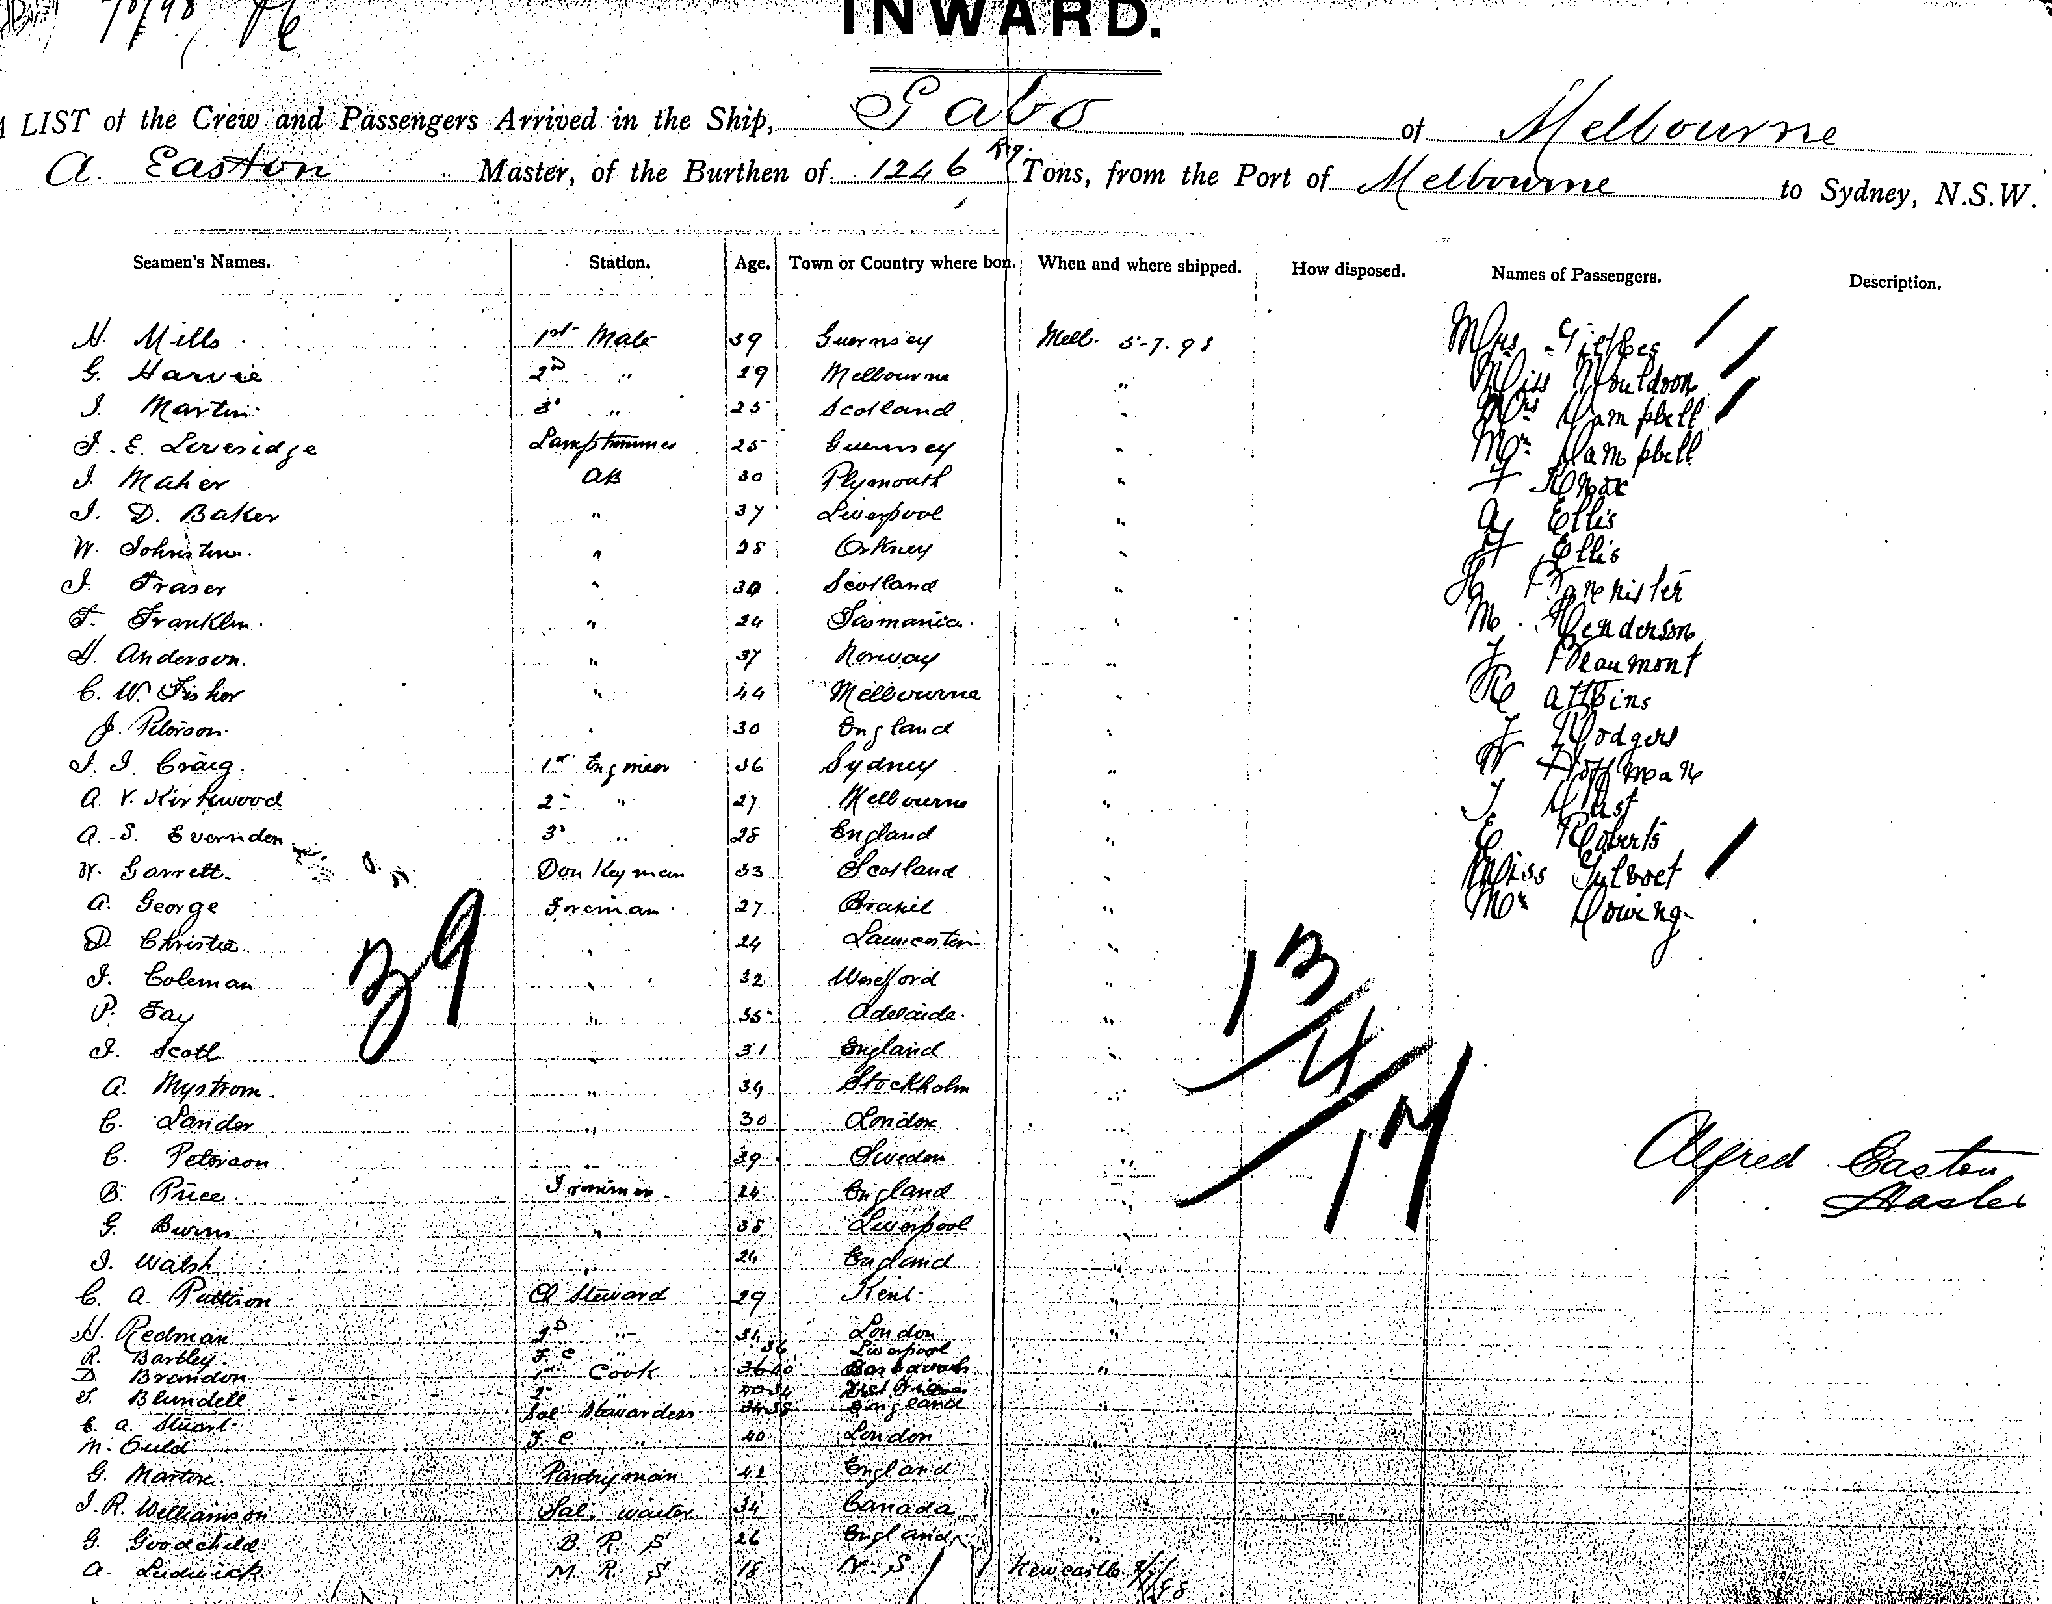 INWARD.
A LIST of the Crew and Passengers Arrived in the Ship, Gabo of Melbourne
A. Easton Master, of the Burthen of 1246 Tons, from the Port of Melbourne to Sydney, N.S.W.
Seamen's Names. Station. Age. Town or Country where bon. When and where shipped. How disposed. Names of Passengers. Description.
H. Mills 1st Mate 39 Guernsey Melb. 5-7-98 Mrs
G. Harvie 2D " 29 Melbourne " Miss Mouldron
J. Martin 3 " 25 Scotland " Mrs Campbell
J. E. Liveridge Lamptrimmer 25 Guernsey " Mr Campbell
J. Maher AB 30 Plymouth " Knox
J. D. Baker " 37 Liverpool " A Ellis
W. Johnston " 28 Orkney " Ellis
J. Fraser " 30 Scotland " Bannister
F. Franklin " 24 Tasmania " M. Henderson
H. Anderson " 37 Norway " Beaumont
C. W. Fisher " 44 Melbourne " Attkins
J. Peterson " 30 England " Rodgers
J. J. Craig 1st Engineer 36 Sydney " Hoffman
A. V. Kirkwood 2 " 27 Melbourne "
A. S. Evernden 3 " 28 England " E Roberts
W. Garrett Donkeyman 33 Scotland " Miss
A. George Fireman 27 Brazil " Mr
D. Christie " 24 Launceston "
J. Coleman " 32 Wexford "
P. Fay " 35 Adelaide "
J. Scott " 31 England "
A. Nystrom " 34 Stockholm "
C. Lander " 30 London "
C. Peterson " 39 Sweden "
B. Price Trimmer 24 England "
G. Burns " 38 Liverpool "
J. Walsh " 24 England "
C. A. Patterson Ch Steward 29 Kent "
H. Redman 2D " London "
R. Bartley F C " 36 Liverpool
D Brandon 1st Cook Barbadoes "
T. Blundell 2 "
E A Stuart Sal Stewardess England
M. Guld F C " 40 London "
G. Martin Pantryman 42 England
J. R. Williamson Sal. waiter 34 Canada "
G. Goodchild B. R. S 26 England "
A. Ludwick M. R. S 18 N. S. Newcastle
39
13
4
17
Alfred Easton
Master